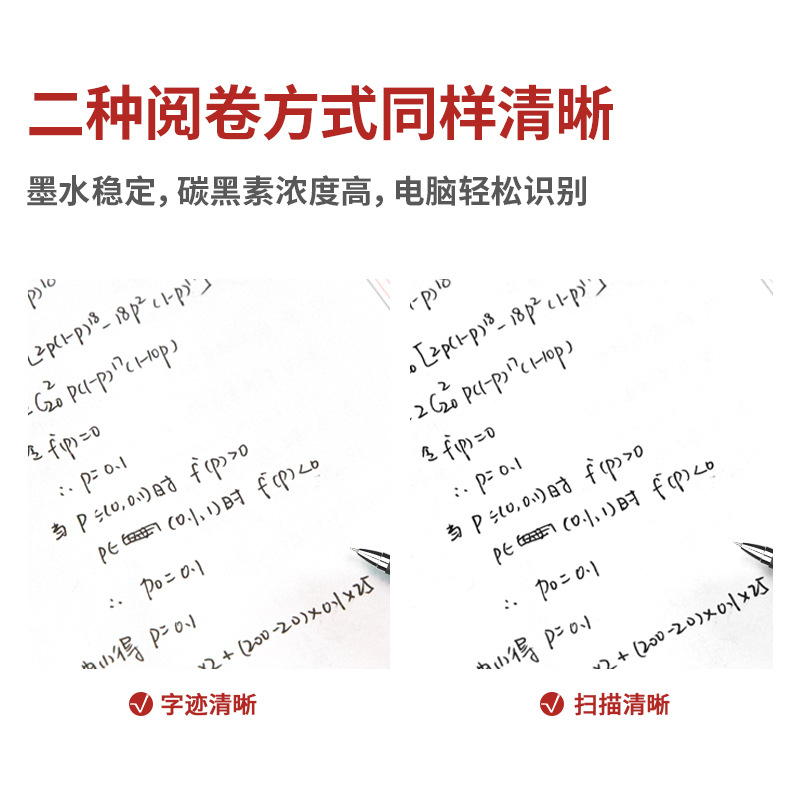 二种阅卷方式同样清晰
墨水稳定，碳黑素浓度高，电脑轻松识别
[2p(1-p)¹⁸-18p²(1-p)¹⁷]
C²₂₀ p(1-p)¹⁷(1-10p)
f'(p)=0
∴ p=0.1
当 p=(0,0.1)时 f'(p)>0
p∈ (0.1,1)时 f'(p)<0
∴ p₀=0.1
得 p=0.1
×2+(200-20)×0.1×25
[2p(1-p)¹⁸-18p²(1-p)¹⁷]
2C²₂₀ p(1-p)¹⁷(1-10p)
f'(p)=0
∴ p=0.1
当 p=(0,0.1)时 f'(p)>0
p∈ (0.1,1)时 f'(p)<0
∴ p₀=0.1
得 p=0.1
×2+(200-20)×0.1×25
字迹清晰
扫描清晰